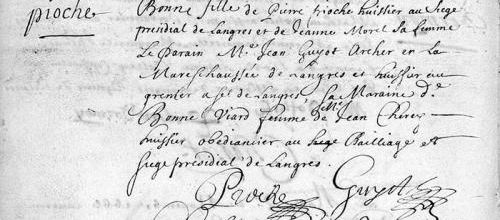 pioche
Bonne fille de Pierre pioche huissier au Siege
presidial de Langres et de Jeanne Morel sa femme
Le Parain M.e Jean Guyot Archer en La
Mareschaussée de Langres et huissier au
grenier a sel de Langres, La Maraine d.e
Bonne Viard femme de M.e Jean
huissier obediancier au Siege Bailliage et
Siege presidial de Langres.
Pioche Guyot